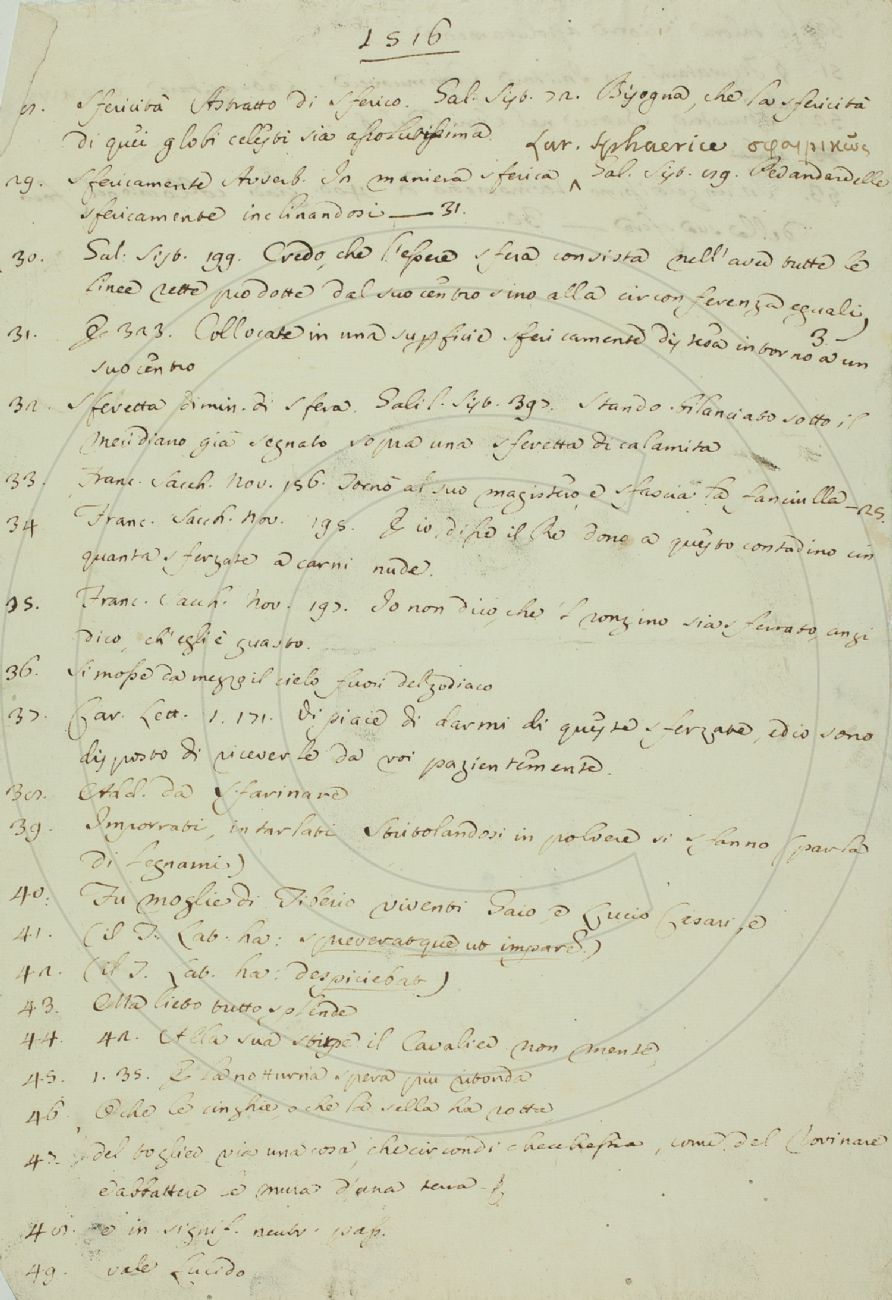 1516
Sfericità Astratto di Sferico. Gal. Sist. 72. Bisogna, che la sfericità
di quei globi celesti sia assolutissima Lat. sphaerice σφαιρικῶς
29. Sfericamente Avverb. In maniera sferica ^ Gal. Sist. delle
sfericamente inclinandosi — 31.
30. Gal. Sist. 199. Credo, che l'essere sfera consista nell'aver tutte le
linee rette prodotte dal suo centro sino alla circonferenza eguali,
31. E 323. Collocate in una supficie sfericamente distesa intorno a un 3.
suo centro
32. Sferetta dimin. di sfera. Galil. Sist. 397. Stando bilanciato sotto il
meridiano già segnato sopra una sferetta di calamita
33. Franc. Sacch. Nov. 156. Tornò al suo magisterio, e sfascia la fanciulla — 25.
34 Franc. Sacch. Nov. 195. E io, disse il Re dono a questo contadino cin
quanta sferzate a carni nude.
35. Franc. Sacch. Nov. 197. Io non dico, che 'l ronzino sia sferrato, anzi
dico, ch'egli è guasto.
36. Si mosse da mezzo il cielo fuori del zodiaco
37. Car. Lett. 1. 171. Vi piace di darmi di queste sferzate, ed io sono
disposto di riceverle da voi pazientemente.
38. Add. da Sfarinare
39. Imporrati, intarlati stritolandosi in polvere si sfanno (parla
di legnami.)
40. Fu moglie di Tiberio viventi Gaio, e Lucio Cesari, e
41. (il T. Lat. ha: spreveratque ut imparē.)
42. (il T. Lat. ha: despiciebat)
43. Ma lieto tutto splende
44. 42. Alla sua stirpe il Cavalier non mente,
45. 1. 35. E la notturna spera più ritonda
46 O che le cinghie, o che la sella ha rotta
47. del toglier via una cosa, che circondi checchessia, come del rovinare
e abbattere le mura d'una terra
48. e in signif. neutr. pass.
49. vale Lucido